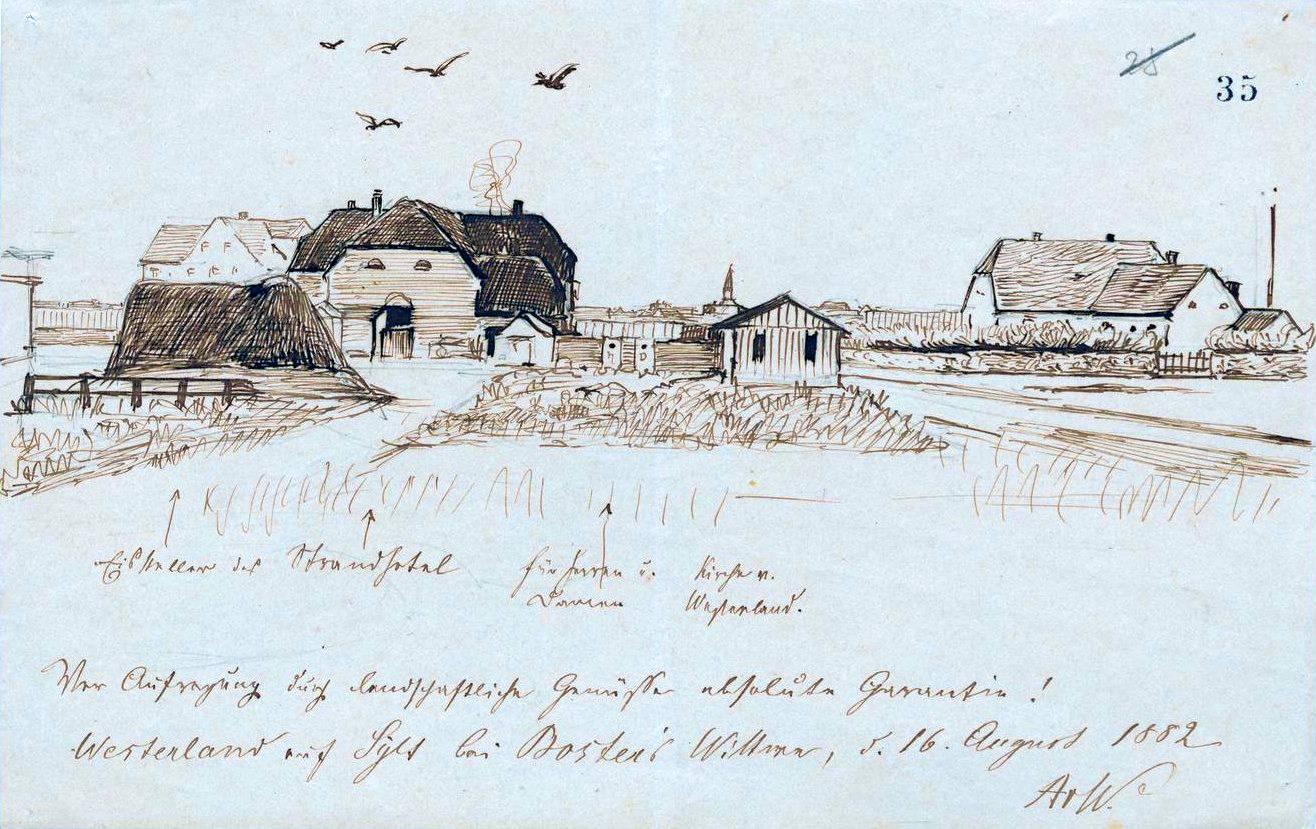 28
35
Eiskeller des Strandhotel
für Herren u.
Damen
Kirche v.
Westerland.
Vor Aufregung durch landschaftliche Genüsse absolute Garantie!
Westerland auf Sylt bei Wittwe, d. 16. August 1882